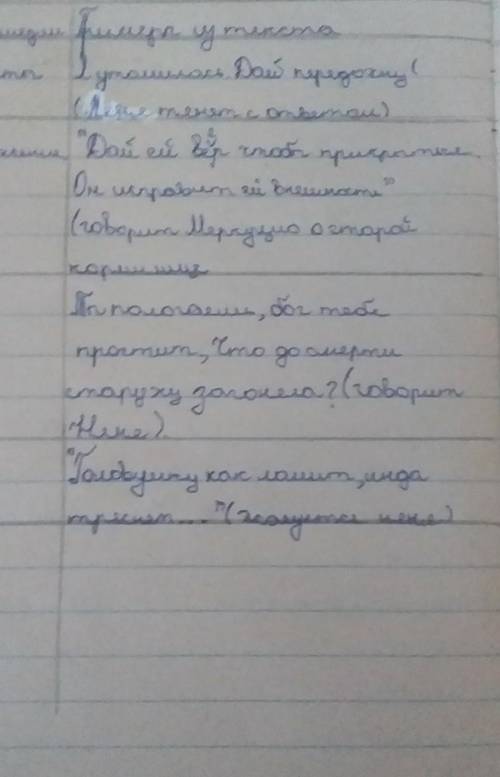 Примеры из текста
Я утомилась. Дай передохну!
ты
(Няня тянет с ответом)
"Дай ей веер чтобы прикрыться
Он исправит ей внешность"
(говорит Меркуцио о старой
кормилице
Ты пологаешь, бог тебе
простит, Что до смерти
старуху загонела? (говорит
Няне).
"Головушку как ломит, инда
треснет..." (жалуется няня)